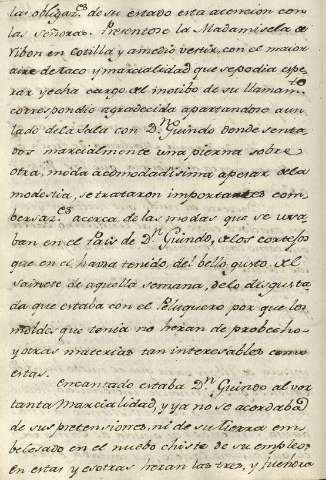 las obligaz.es de su estado esta atencion con
las Señoras. Presentose la Madamisela de
Vibon en cotilla y a medio vestir, con el maior
aire de taco y marcialidad que se podia espe
rar y echa cargo del motibo de su llamam.to
correspondio agradecida apartandose a un
lado dela Sala con D.n Guindo donde senta
dos marcialmente una pierna sobre
otra, moda acomodadisima apesar dela
modestia, se trataron importantes com
bersaz.es acerca de las modas que se usa
ban en el Pais de D.n Guindo, delos cortejos
que en el havia tenido, del bello gusto del
sainete de aquella semana, delo disgusta
da que estaba con el Peluquero por que los
moldes que tenia no heran de probecho
y otras materias tan interesables como
estas.
Encantado estaba D.n Guindo al ver
tanta Marcialidad, y ya no se acordaba
de sus pretensiones, ni de su tierra em
belesado en el nuebo chiste de su empleo,
en estas y esotras heran las tres, y